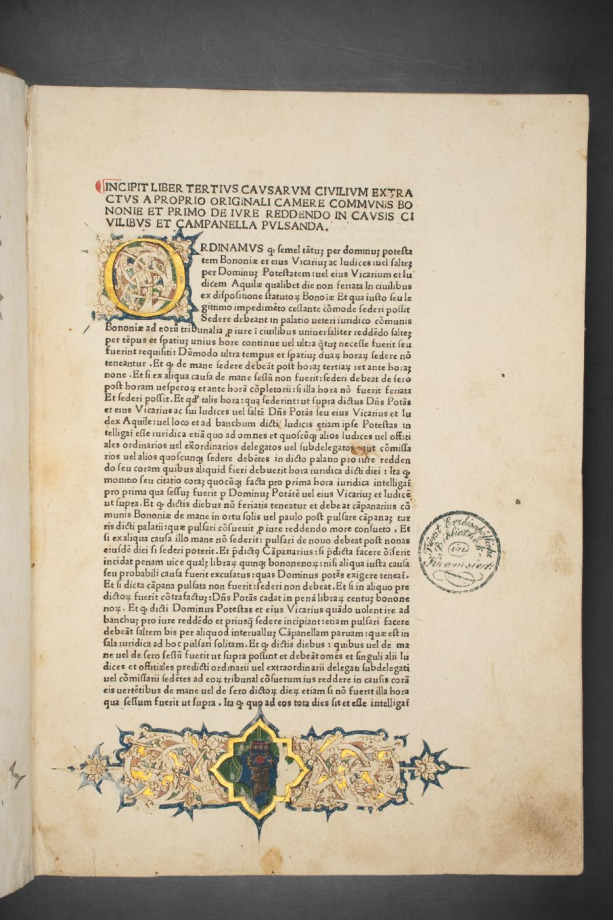 INCIPIT LIBER TERTIVS CAVSARVM CIVILIVM EXTRA
CTVS A PROPRIO ORIGINALI CAMERE COMMVNIS BO
NONIE ET PRIMO DE IVRE REDDENDO IN CAVSIS CI
VILIBVS ET CAMPANELLA PVLSANDA.
ORDINAMVS ꝙ semel tātuꝫ per dominuꝫ potesta
tem Bononiæ et eius Vicariuꝫ ac Iudices :uel salteꝫ
per Dominuꝫ Potestatem :uel eius Vicarium et Iu
dicem Aquilæ qualibet die non feriata In ciuilibus
ex dispositione statutoꝝ Bonoīæ Et qua iusto seu le
gittimo impedimēto cessante cōmode sederi possit
Sedere debeant in palatio ueteri iuridico cōmunis
Bononiæ ad eorū tribunalia ꝓ iure ī ciuilibus uniuersaliter reddēdo salteꝫ
per tēpus et spatiuꝫ unius hore continue uel ultra q̄tuꝫ necesse fuerit seu
fuerint requisiti: Dūmodo ultra tempus et spatiuꝫ duaꝝ horaꝝ sedere nō
teneantur . Et ꝙ de mane sedere debeāt post horaꝫ tertiaꝝ :et ante horaꝫ
none . Et si ex aliqua causa de mane sessū non fuerit :sederi debeat de sero
post horam uesperoꝝ et ante horā cōpletorii :si illa hora nō fuerit feriata
Et sederi possit. Et qd' talis hora :qua sederint :ut supra dictus Dn̄s Potās
et eius Vicarius ac sui Iudices uel saltē Dn̄s Potās seu eius Vicarius et Iu
dex Aquile :uel loco et ad banchum dicti Iudicis etiam ipse Potestas in
telligat' esse iuridica etiā quo ad omnes et quoscūqꝫ alios Iudices uel offiti
ales ordinarios uel exordinarios delegatos uel subdelegatos aut cōmissa
rios uel alios quoscunqꝫ sedere debētes in dicto palatio pro iure redden
do seu coram quibus aliquid fieri debuerit hora iuridica dicti diei : Ita ꝙ
monitio seu citatio coraꝫ quocūqꝫ facta pro prima hora iuridica intelligat'
pro prima qua sessuꝫ fuerit ꝑ Dominuꝫ Potātē uel eius Vicariuꝫ et Iudicē
ut supra. Et ꝙ dictis diebus nō feriatis teneatur et debeat cāpanarius cō
munis Bononiæ de mane in ortu solis uel paulo post pulsare cāpanaꝫ tur
ris dicti palatii :quæ pulsari cōsueuit ꝓ iure reddendo more consueto . Et
si ex aliqua causa illo mane nō sederit': pulsari de nouo debeat post nonas
eiusdē diei si sederi poterit. Et p̄dict9 Cāpanarius :si p̄dicta facere oīserit
incidat penam uice qualꝫ libraꝝ quinqꝫ bononenoꝝ: nisi aliqua iusta causa
seu probabili causa fuerit excusatus :quas Dominus potās exigere teneat'.
Et si dicta cāpana pulsata non fuerit :sederi non debeat. Et si in aliquo pre
dictoꝝ fuerit cōtrafactuꝫ: Dn̄s Potās cadat in penā libraꝝ centuꝫ bonone
noꝝ. Et ꝙ dicti Dominus Potestas et eius Vicarius quādo uolent ire ad
banchuꝫ pro iure reddēdo et priusqꝫ sedere incipiant :etiam pulsari facere
debeāt saltem bis per aliquod interualluꝫ Cāpanellam paruam :quæ est in
sala iuridica ad hoc pulsari solitam. Et ꝙ dictis diebus : quibus uel de ma
ne uel de sero sessū fuerit ut supra possint et debeāt omēs et singuli alii Iu
dices et offitiales predicti ordinarii uel extraordinarii delegati subdelegati
uel cōmissarii sedētes ad eoꝝ tribunal cōsuetum ius reddere in causis corā
eis uertētibus de mane uel de sero dictoꝝ dieꝝ etiam si nō fuerit illa hora
qua sessum fuerit ut supra . Ita ꝙ quo ad eos tota dies sit et esse intelligat'
Fürst Erzbischöfliche
Bibliothek
in
Kremsier